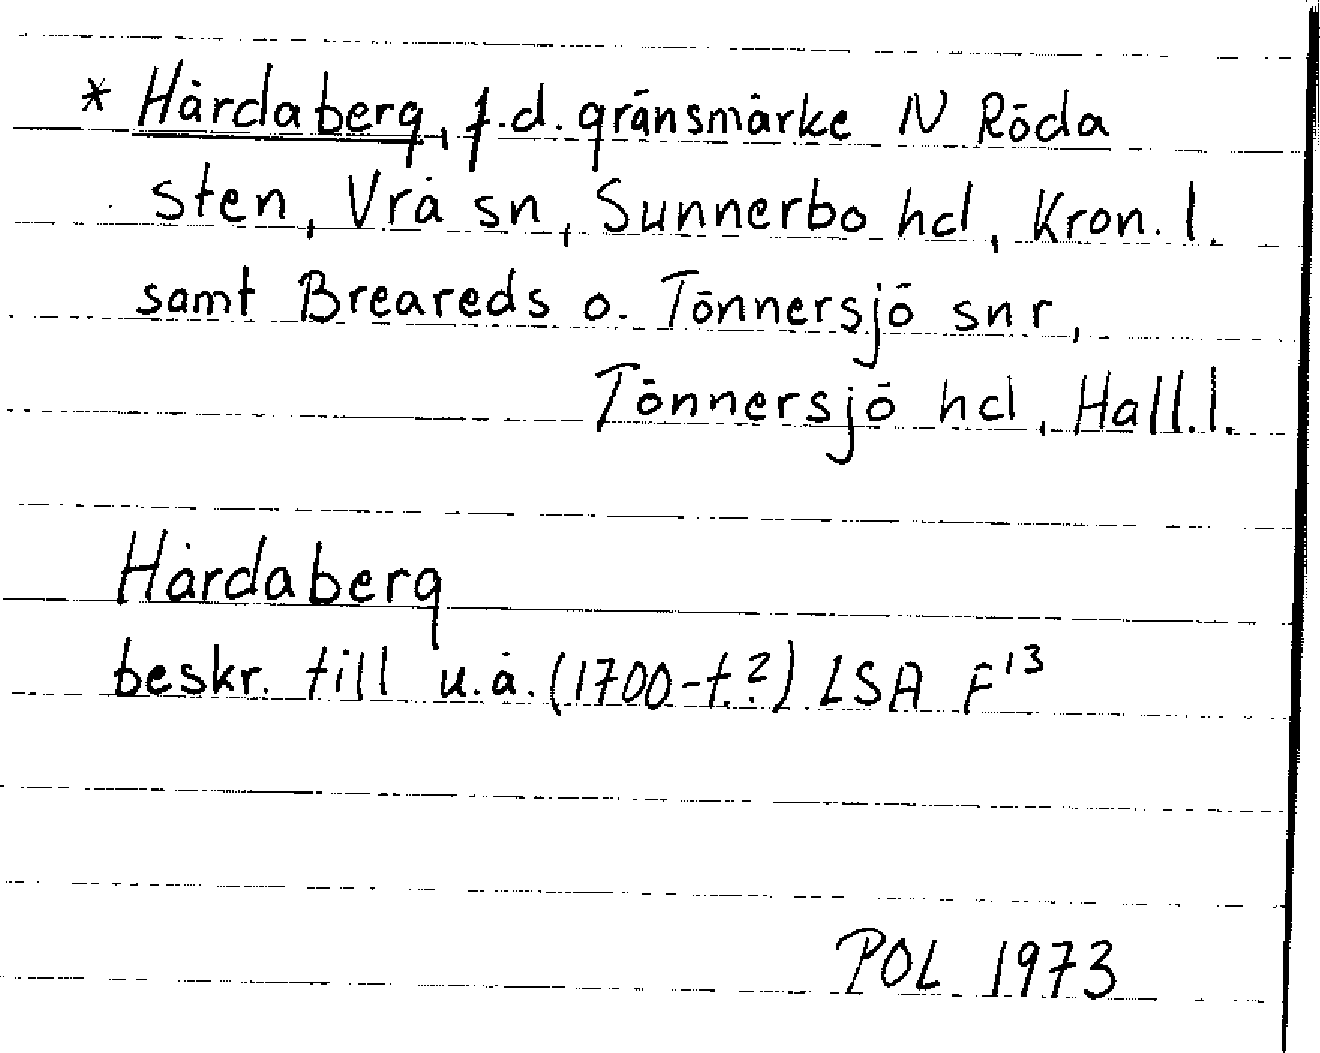 * Hårdaberg, f.d. gränsmärke N Röda
sten, Vrå sn, Sunnerbo hd, Kron. l.
samt Breareds o. Tönnersjö snr,
Tönnersjö hd, Hall.l.
Hårdaberg
beskr. till u.å. (1700-t.?) LSA F¹³
POL 1973